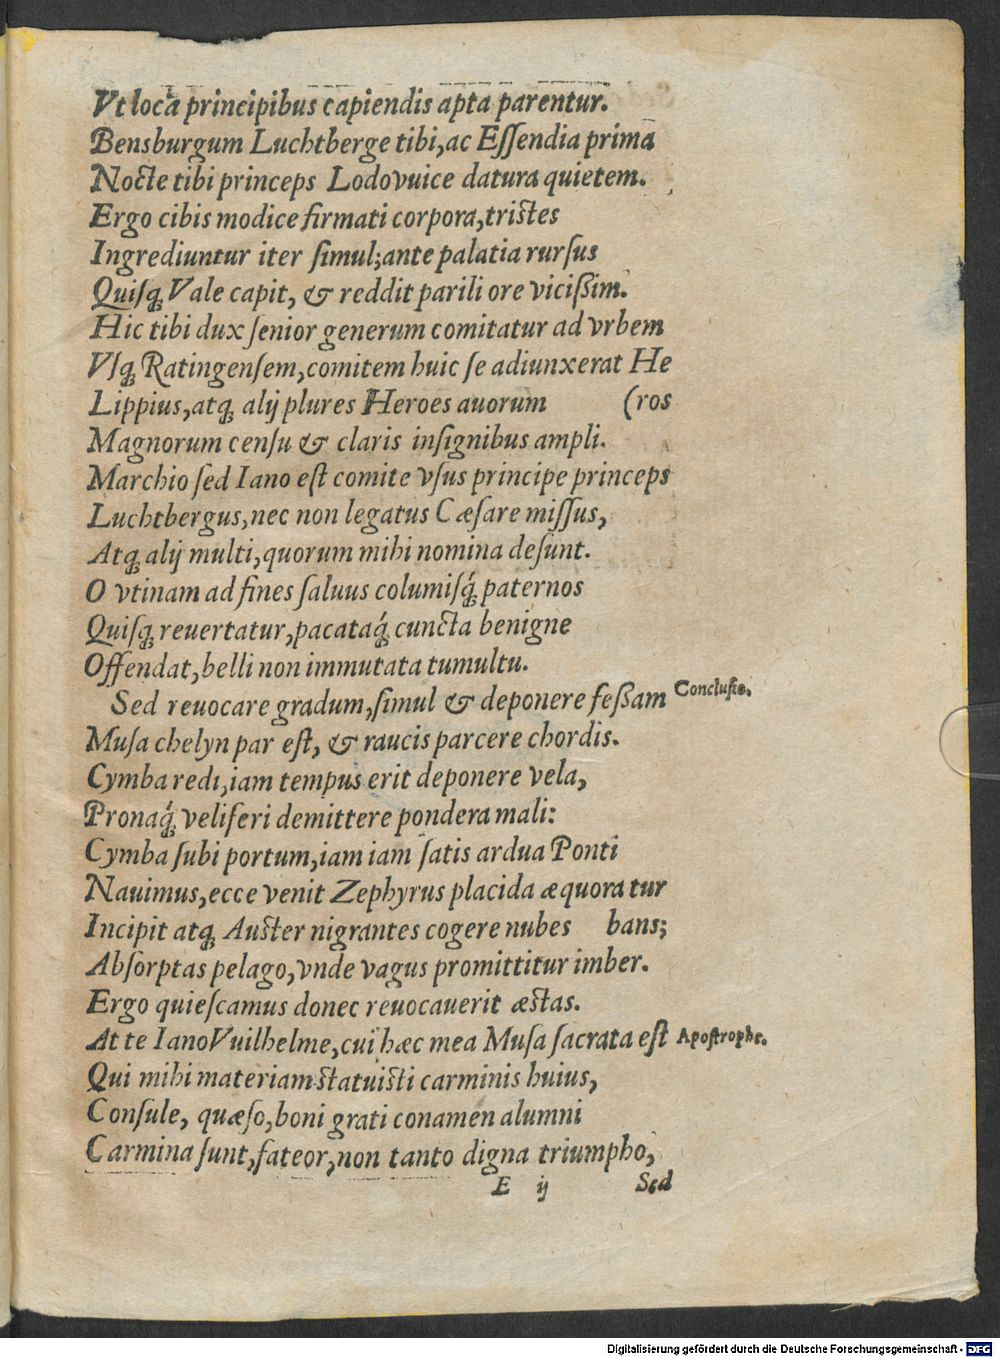 Vt loca principibus capiendis apta parentur.
Bensburgum Luchtberge tibi, ac Eſſendia prima
Nocte tibi princeps Lodovuice datura quietem.
Ergo cibis modice firmati corpora, tristes
Ingrediuntur iter ſimul; ante palatia rurſus
Quiſq; Vale capit, & reddit parili ore viciſsim.
Hic tibi dux ſenior generum comitatur ad vrbem
Vſq; Ratingenſem, comitem huic ſe adiunxerat He
Lippius, atq; alij plures Heroes auorum (ros
Magnorum cenſu & claris inſignibus ampli.
Marchio ſed Iano eſt comite vſus principe princeps
Luchtbergus, nec non legatus Cæſare miſſus,
Atq; alij multi, quorum mihi nomina deſunt.
O vtinam ad fines ſaluus columiſq́; paternos
Quiſq; reuertatur, pacataq́; cuncta benigne
Offendat, belli non immutata tumultu.
Sed reuocare gradum, ſimul & deponere feſsam Concluſio.
Muſa chelyn par eſt, & raucis parcere chordis.
Cymba redi, iam tempus erit deponere vela,
Pronaq́; veliferi demittere pondera mali:
Cymba ſubi portum, iam iam ſatis ardua Ponti
Nauimus, ecce venit Zephyrus placida æquora tur
Incipit atq; Auster nigrantes cogere nubes bans;
Abſorptas pelago, vnde vagus promittitur imber.
Ergo quieſcamus donec reuocauerit æstas.
At te Iano Vuilhelme, cui hæc mea Muſa ſacrata eſt Apoſtrophe.
Qui mihi materiam statuisti carminis huius,
Conſule, quæſo, boni grati conamen alumni
Carmina ſunt, fateor, non tanto digna triumpho,
E ij Sed
Digitalisierung gefördert durch die Deutsche Forschungsgemeinschaft - DFG